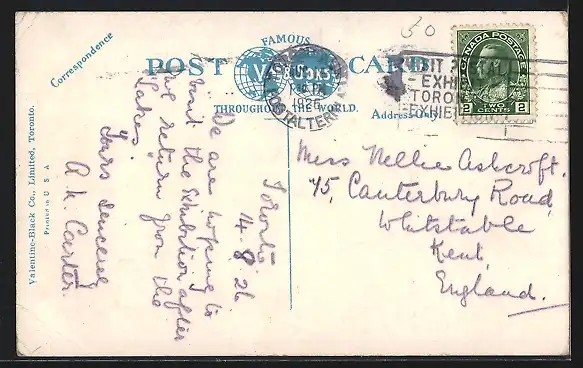 Correspondence
FAMOUS
POST CARD
THROUGHOUT THE WORLD.
Address Only
50
POSTAL TERM
1926
VISIT
EXHI
TORON
EXHIBITION
CANADA POSTAGE
2 TWO CENTS 2
Toronto
14-8-26
We are hoping to
visit the Exhibition after
we return from the
Lakes.
Yours sincerely
A. K. Carter.
Miss Nellie Ashcroft.
75, Canterbury Road,
Whitstable
Kent,
England.
Valentine-Black Co., Limited, Toronto.
PRINTED IN U S A